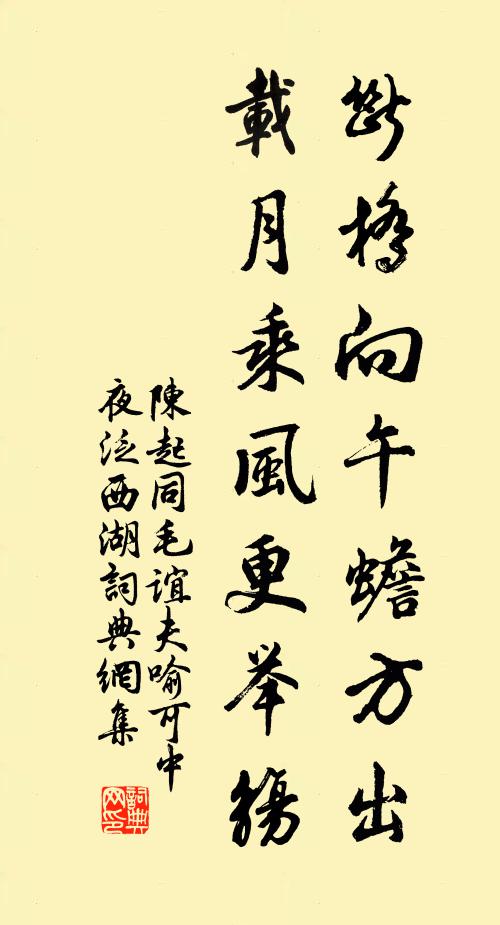 斷橋向午蟾方出
載月乘風更举觴
陳起同毛誼夫喻可中
夜泛西湖詞典網集
詞典
网印